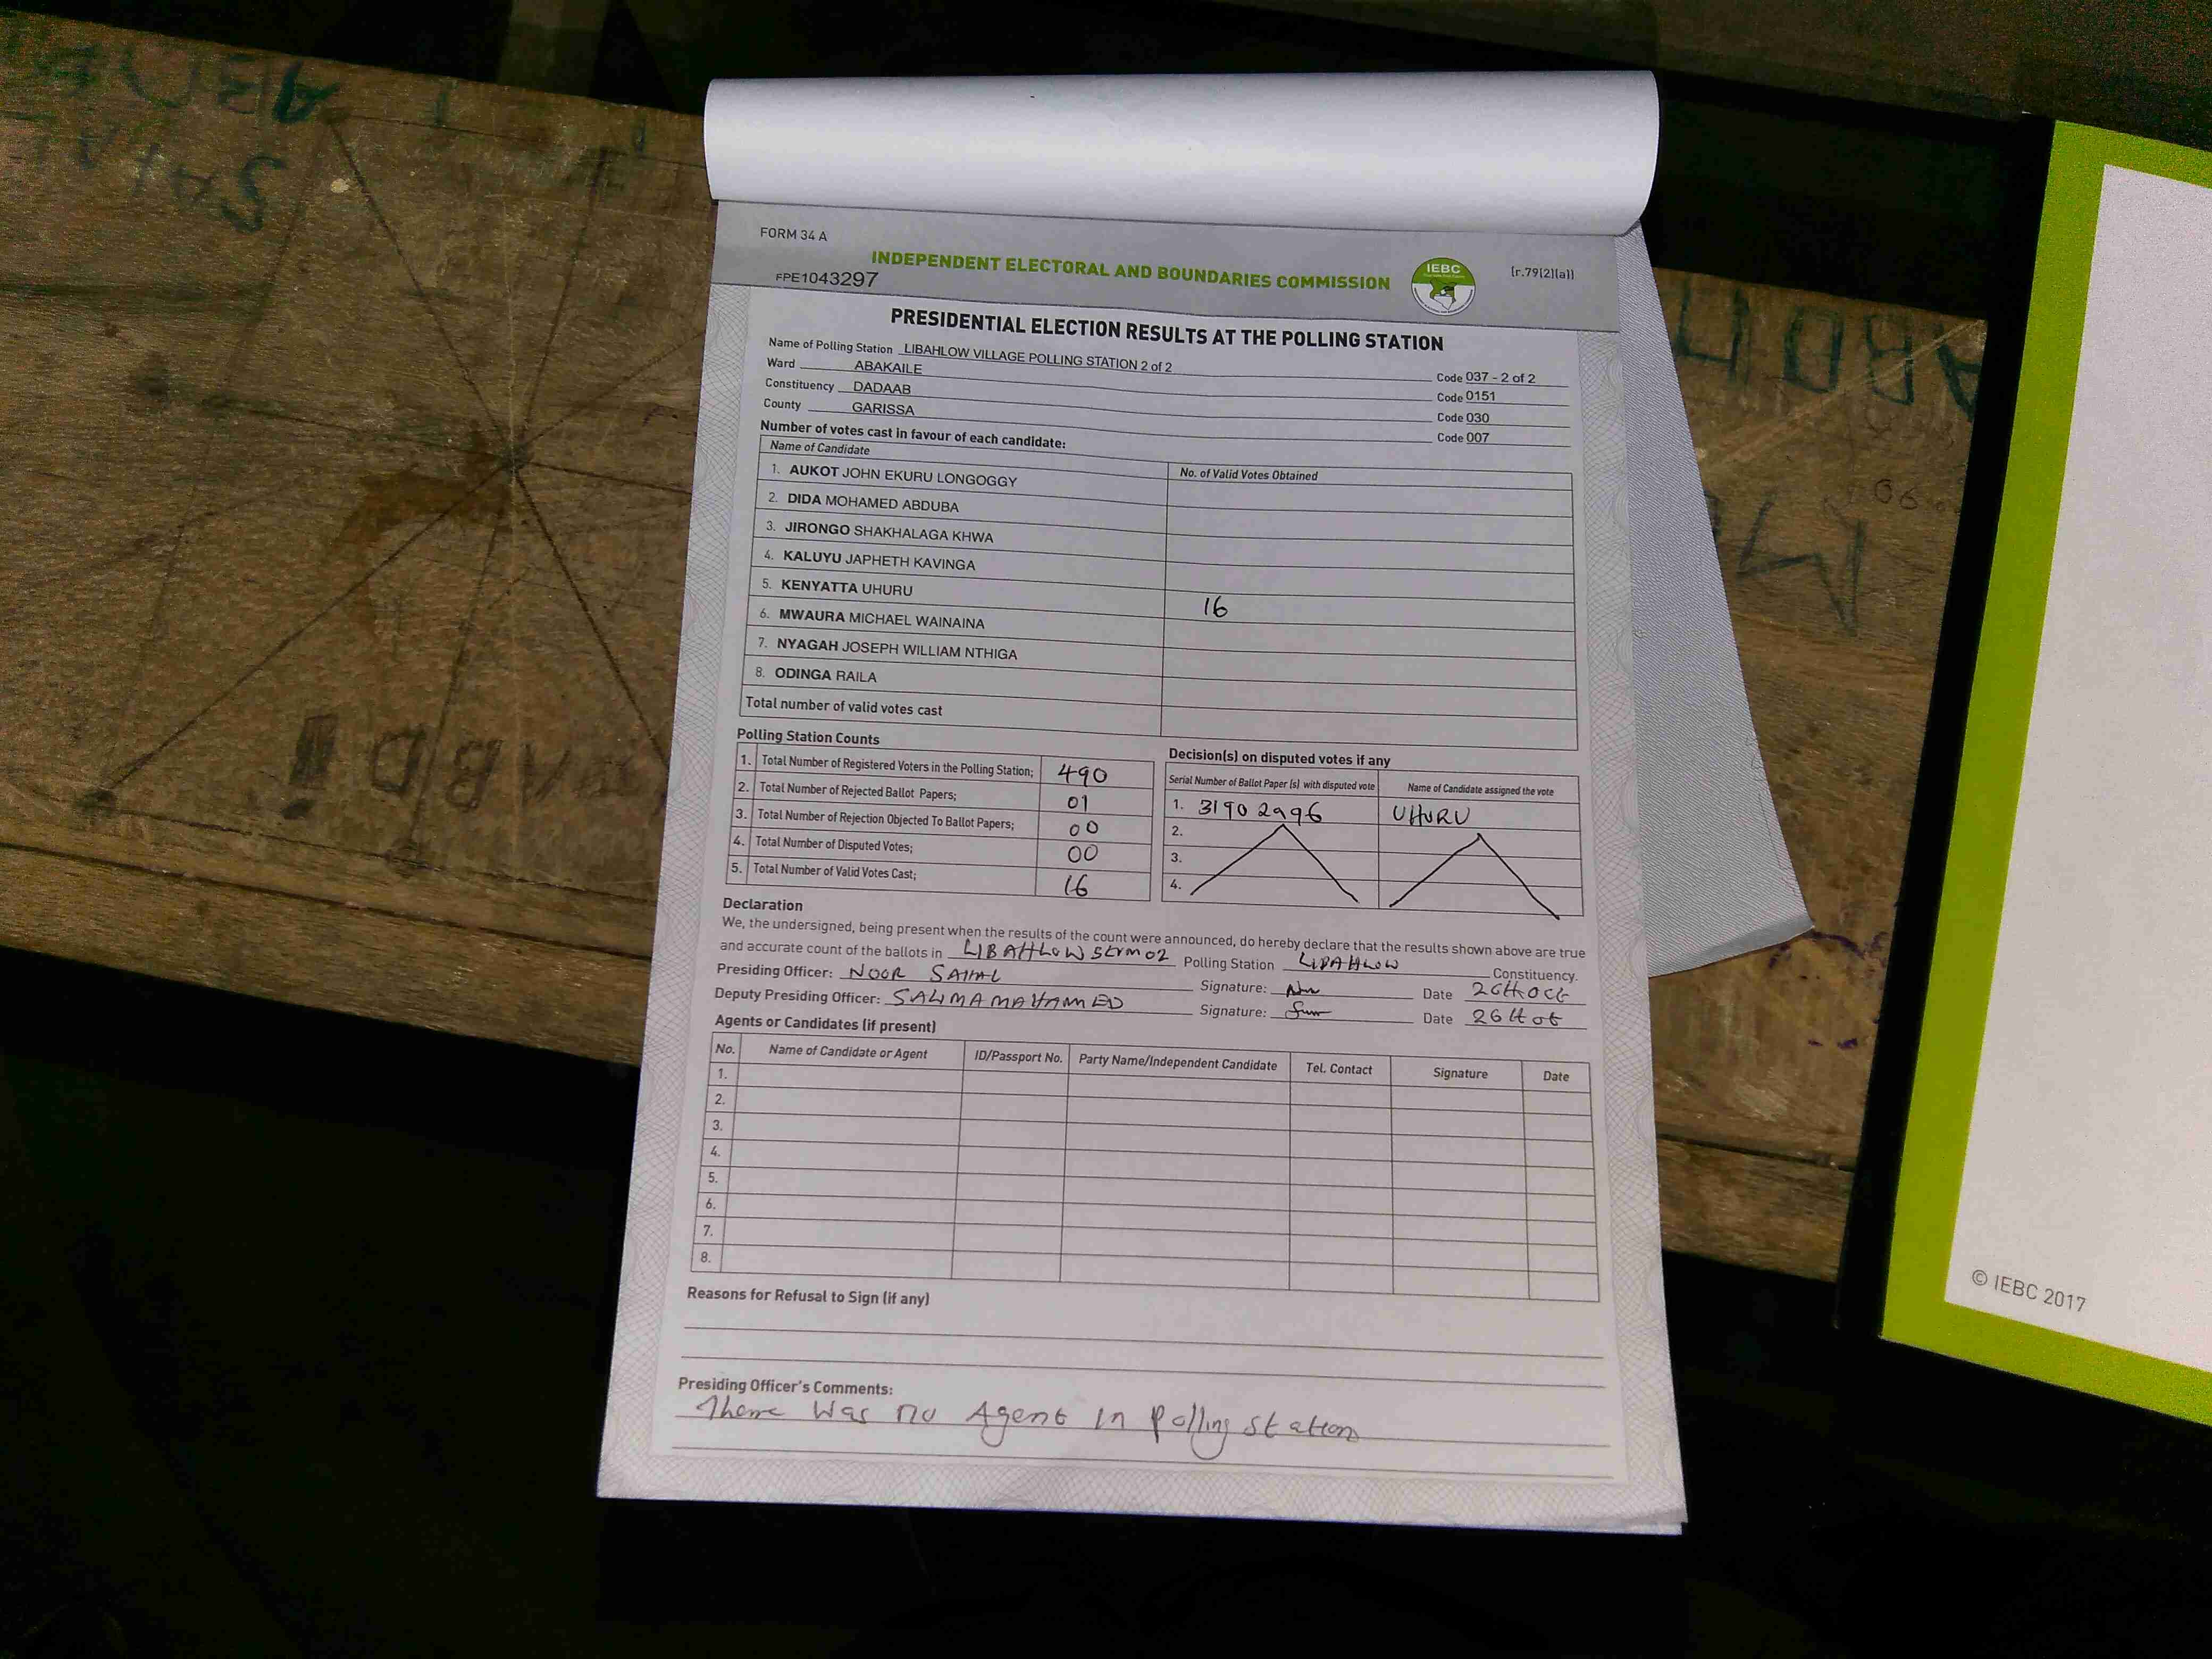 FORM 34 A
INDEPENDENT ELECTORAL AND BOUNDARIES COMMISSION
IEBC
[r.79(2)(a)]
FPE1043297
PRESIDENTIAL ELECTION RESULTS AT THE POLLING STATION
Name of Polling Station LIBAHLOW VILLAGE POLLING STATION 2 of 2 Code 037 - 2 of 2
Ward ABAKAILE Code 0151
Constituency DADAAB Code 030
County GARISSA Code 007
Number of votes cast in favour of each candidate:
Name of Candidate No. of Valid Votes Obtained
1. AUKOT JOHN EKURU LONGOGGY
2. DIDA MOHAMED ABDUBA
3. JIRONGO SHAKHALAGA KHWA
4. KALUYU JAPHETH KAVINGA
5. KENYATTA UHURU 16
6. MWAURA MICHAEL WAINAINA
7. NYAGAH JOSEPH WILLIAM NTHIGA
8. ODINGA RAILA
Total number of valid votes cast
Polling Station Counts
1. Total Number of Registered Voters in the Polling Station; 490
2. Total Number of Rejected Ballot Papers; 01
3. Total Number of Rejection Objected To Ballot Papers; 00
4. Total Number of Disputed Votes; 00
5. Total Number of Valid Votes Cast; 16
Decision(s) on disputed votes if any
Serial Number of Ballot Paper (s) with disputed vote Name of Candidate assigned the vote
1. 31902996 UHURU
2.
3.
4.
Declaration
We, the undersigned, being present when the results of the count were announced, do hereby declare that the results shown above are true
and accurate count of the ballots in LIBAHLOW Polling Station Constituency.
Presiding Officer: NOOR Signature: Date
Deputy Presiding Officer: SALIMA MAHAMMED Signature: Date
Agents or Candidates (if present)
No. Name of Candidate or Agent ID/Passport No. Party Name/Independent Candidate Tel. Contact Signature Date
1.
2.
3.
4.
5.
6.
7.
8.
Reasons for Refusal to Sign (if any)
Presiding Officer's Comments:
There Was no Agent in Polling Station
© IEBC 2017